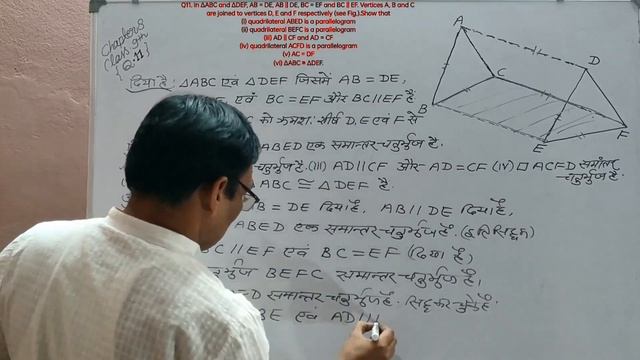 Q11. In ΔABC and ΔDEF, AB = DE, AB || DE, BC = EF and BC || EF. Vertices A, B and C
are joined to vertices D, E and F respectively (see Fig.).Show that
(i) quadrilateral ABED is a parallelogram
(ii) quadrilateral BEFC is a parallelogram
(iii) AD || CF and AD = CF
(iv) quadrilateral ACFD is a parallelogram
(v) AC = DF
(vi) ΔABC ≅ ΔDEF.
Chapter 8
Class 9th
Q.11
A
D
C
B
E
F
दिया है: △ABC एवं △DEF जिसमें AB = DE,
एवं BC = EF और BC || EF हैं
को क्रमशः शीर्ष D, E एवं F से
ABED एक समान्तर चतुर्भुज है.
(III) AD || CF और AD = CF (IV) □ ACFD समांतर
चतुर्भुज है.
ABC ≅ △ DEF है.
B = DE दिया है, AB || DE दिया है,
ABED एक समान्तर चतुर्भुज है.
C || EF एवं BC = EF (दिया है)
BEFC समान्तर चतुर्भुज है,
D समान्तर चतुर्भुज है. सिद्ध कर चुके है.
BE एवं AD ||